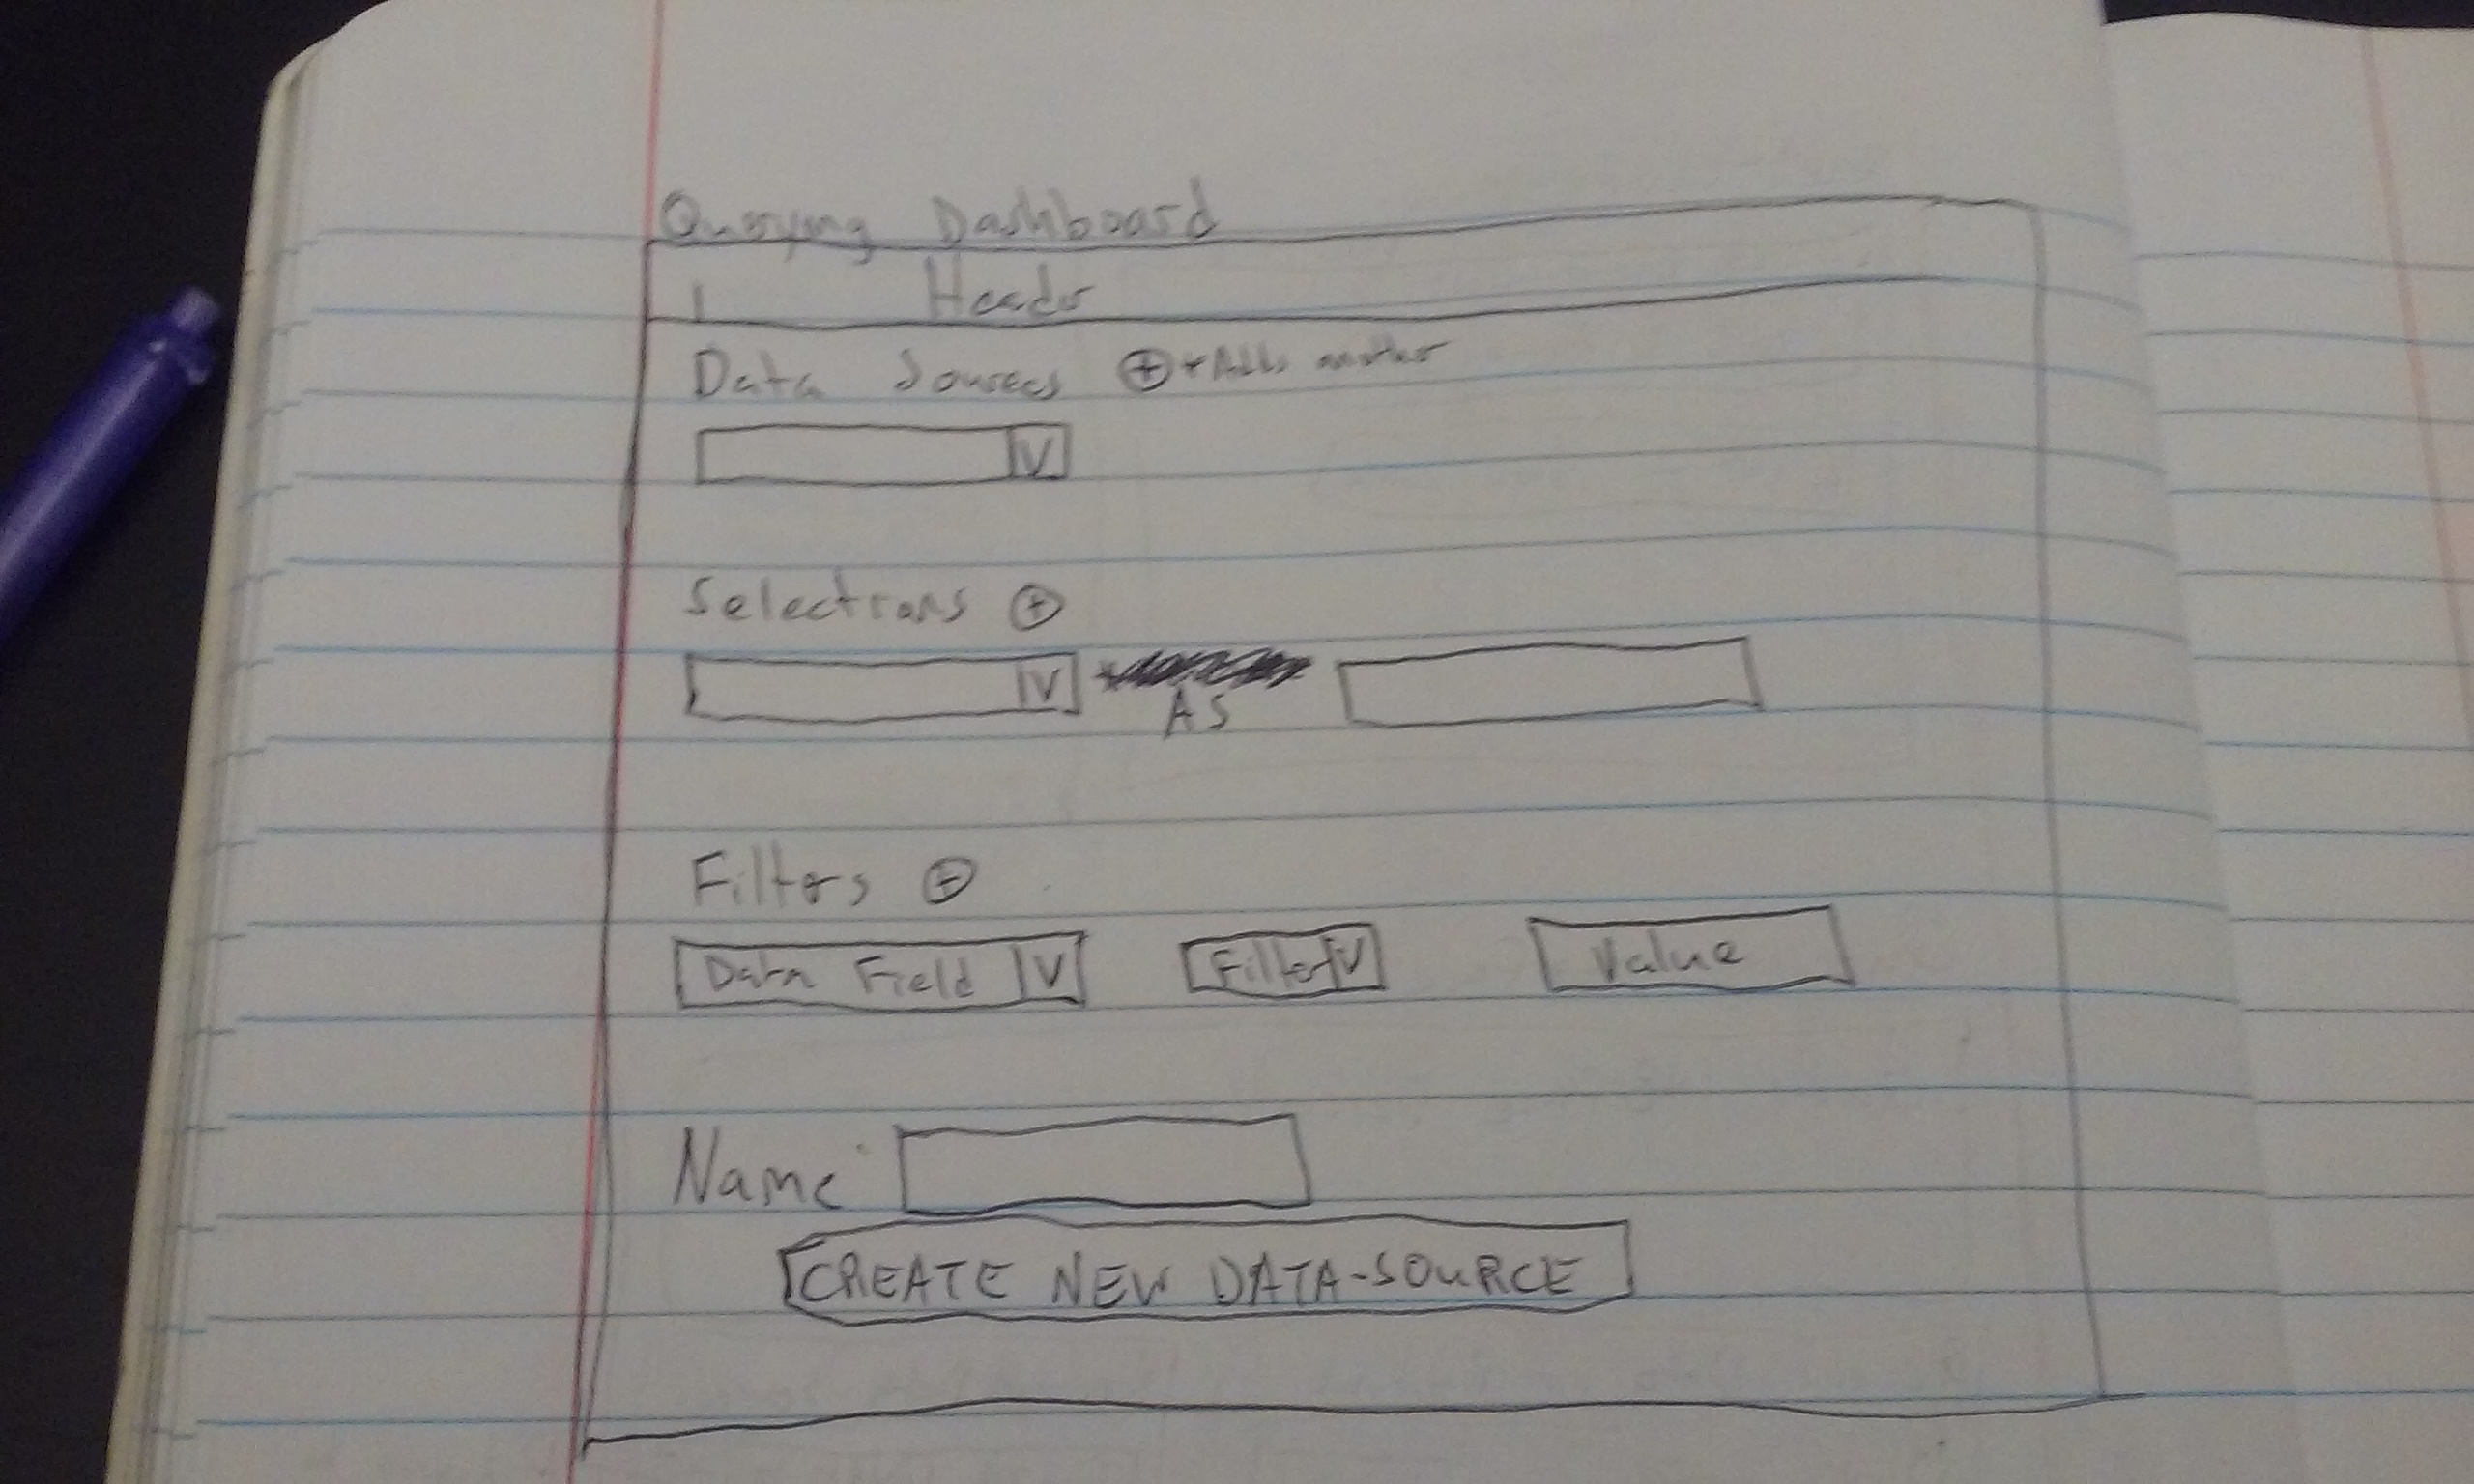 Querying Dashboard
Header
Data Sources ⊕ * Adds another
V
Selections ⊕
V AS
Filters ⊕
Data Field V Filter V Value
Name
CREATE NEW DATA-SOURCE